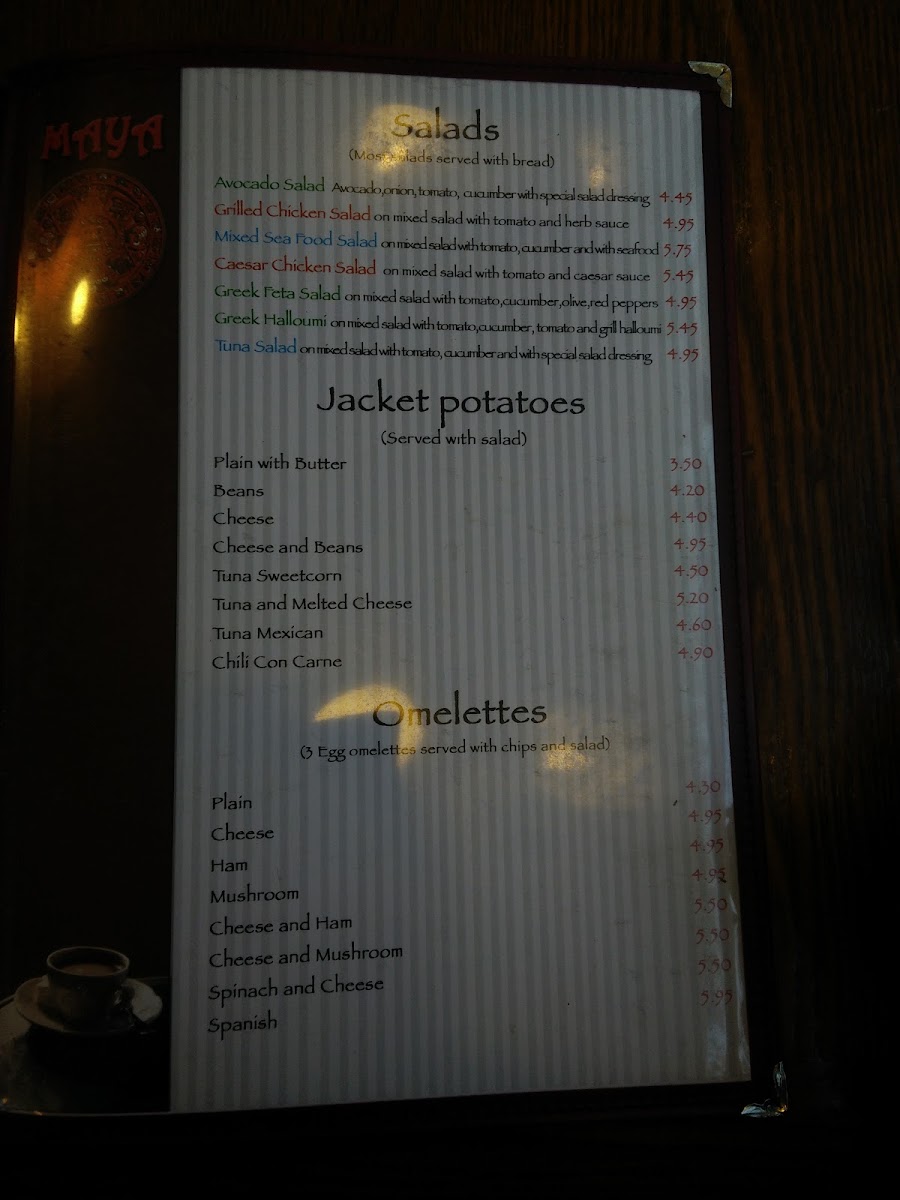 MAYA
Salads
(Most salads served with bread)
Avocado Salad Avocado,onion, tomato, cucumber with special salad dressing 4.45
Grilled Chicken Salad on mixed salad with tomato and herb sauce 4.95
Mixed Sea Food Salad on mixed salad with tomato, cucumber and with seafood 5.75
Caesar Chicken Salad on mixed salad with tomato and caesar sauce 5.45
Greek Feta Salad on mixed salad with tomato,cucumber,olive,red peppers 4.95
Greek Halloumi on mixed salad with tomato,cucumber, tomato and grill halloumi 5.45
Tuna Salad on mixed salad with tomato, cucumber and with special salad dressing 4.95
Jacket potatoes
(Served with salad)
Plain with Butter 3.50
Beans 4.20
Cheese 4.40
Cheese and Beans 4.95
Tuna Sweetcorn 4.50
Tuna and Melted Cheese 5.20
Tuna Mexican 4.60
Chili Con Carne 4.90
Omelettes
(3 Egg omelettes served with chips and salad)
Plain 4.30
Cheese 4.95
Ham 4.95
Mushroom 4.95
Cheese and Ham 5.50
Cheese and Mushroom 5.50
Spinach and Cheese 5.50
Spanish 5.95